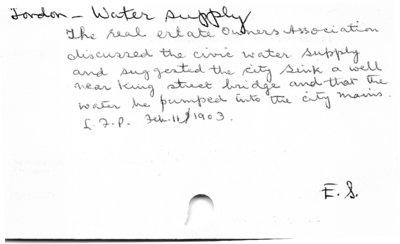 London - Water supply
The real estate Owners Association
discussed the civic water supply
and suggested the city sink a well
near King street bridge and that the
water be pumped into the city mains.
L.F.P. Feb. 11/1903.
E.S.